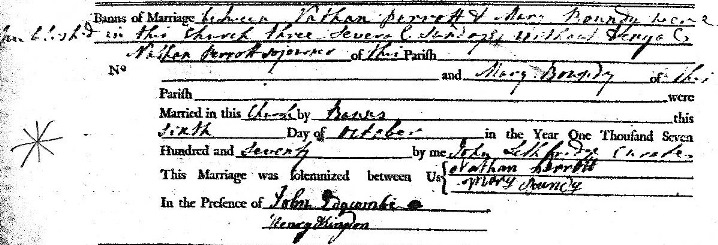 Banns of Marriage between Nathan Perrott & Mary Boundy were
publish'd in this Church three several Sundays without
Nathan Perrott Sojourner of this Parish
No
and Mary Boundy of this
Parish were
Married in this Church by Banns this
Sixth Day of October in the Year One Thousand Seven
Hundred and Seventy by me John Lethbridge Curate
This Marriage was solemnized between Us Nathan Perrott
Mary Boundy
In the Presence of John Edgcombe
Henry Kingdon